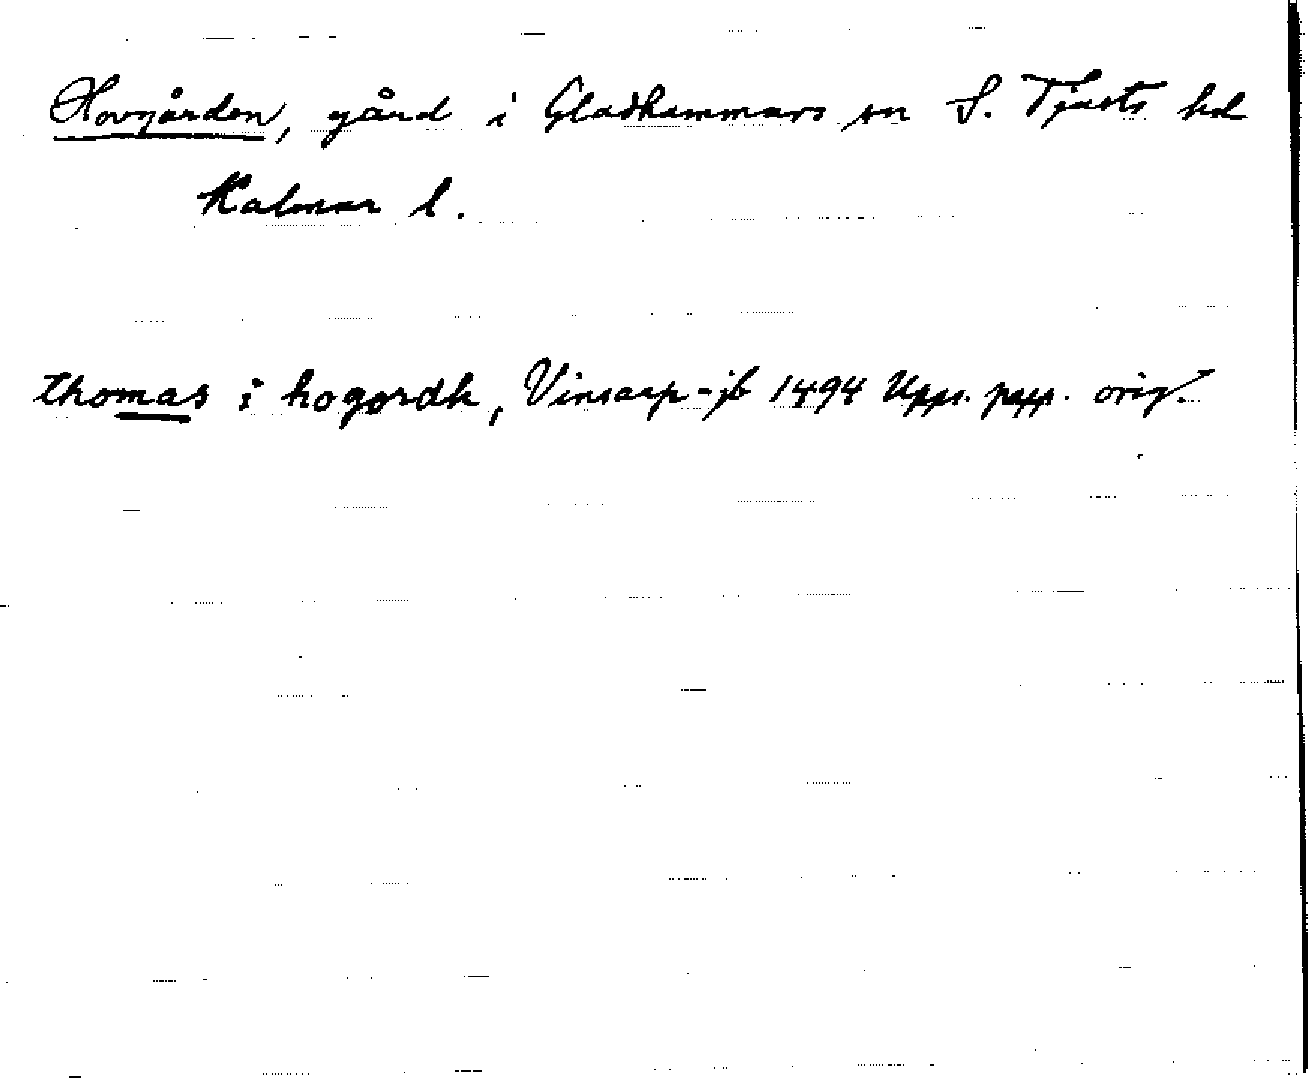 Hovgården, gård i Gladhammars sn S. Tjusts hd
Kalmar l.
thomas i hogordh, Vinsarp-jb 1494 Upps. papp. orig.